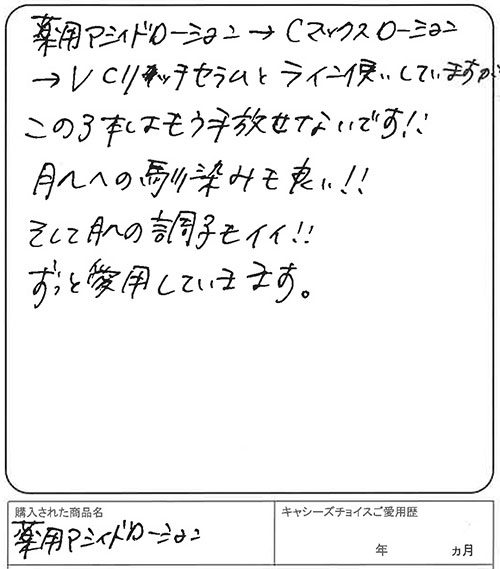 薬用アシィドローション→Cマックスローション
→VCリッチセラムとライン使いしていますが、
この3本はもう手放せないです!!
肌への馴り染みも良い!!
そして肌の調子もイイ!!
ずっと愛用しています。
購入された商品名
キャシーズチョイスご愛用歴
薬用アシィドローション
年 ヵ月